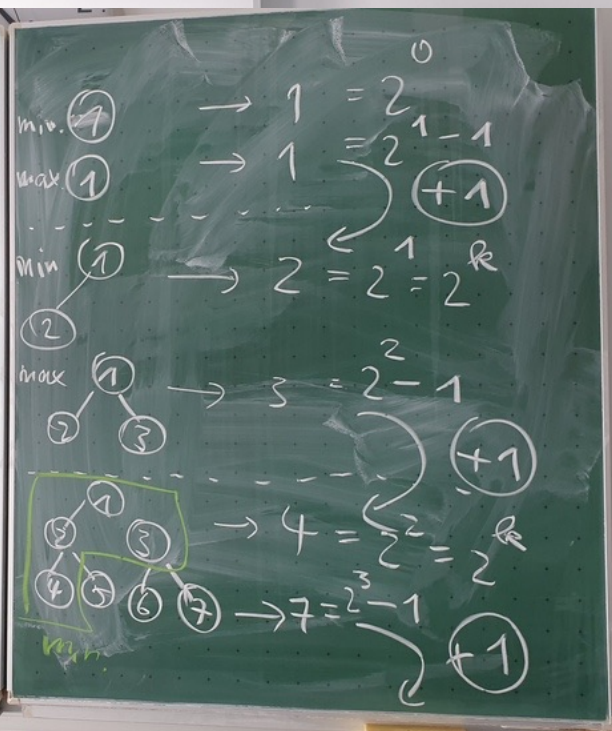 min. 1 → 1 = 2^0
max 1 → 1 = 2^1 - 1
+1
min 1 → 2 = 2^1 = 2^k
2
max 1 → 3 = 2^2 - 1
2 3
+1
1
3 3 → 4 = 2^2 = 2^k
4 5 6 7 → 7 = 2^3 - 1
min. +1